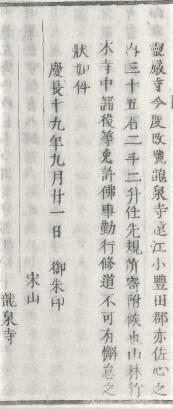 靈巖寺今度改號龍泉寺遠江小豐田郡赤佐心之
內三十五石二斗二升任先規所寄附候也山林竹
木寺中諸役等免許佛事勤行修道不可有懈怠之
狀如件
慶長十九年九月廿一日 御朱印
宋山
龍泉寺